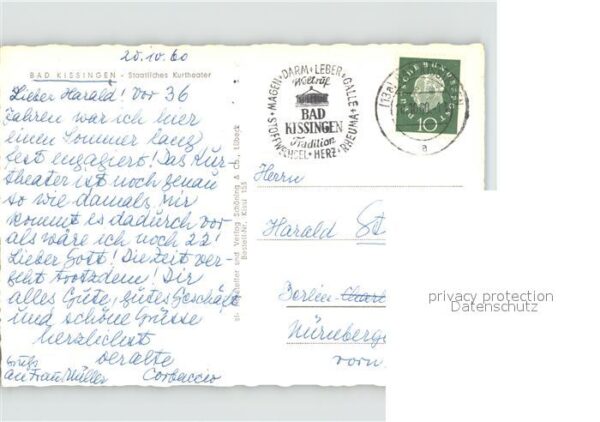 20.IV.60
BAD KISSINGEN - Staatliches Kurtheater
Lieber Harald! Vor 36
Jahren war ich hier
einen Sommer lang
fest engagiert! Das Kur-
theater ist noch genau
so wie damals. Mir
kommt es dadurch vor
als wäre ich noch 22!
Lieber Gott! Die Zeit ver-
geht trotzdem! Dir
alles Gute, gutes Geschäft
und schöne Grüsse
herzlichst
der alte
Corbaccio
Gruß
an Frau Müller
Verlag Schöning & Co., Lübeck
Bestell-Nr.
STOFFWECHSEL • MAGEN • DARM • LEBER • GALLE • RHEUMA • HERZ
Weltruf
BAD
KISSINGEN
Tradition
(13a)
a
DEUTSCHE BUNDESPOST
10
Herrn
Harald St
Berlin-Charl
Nürnberge
vorn
privacy protection
Datenschutz